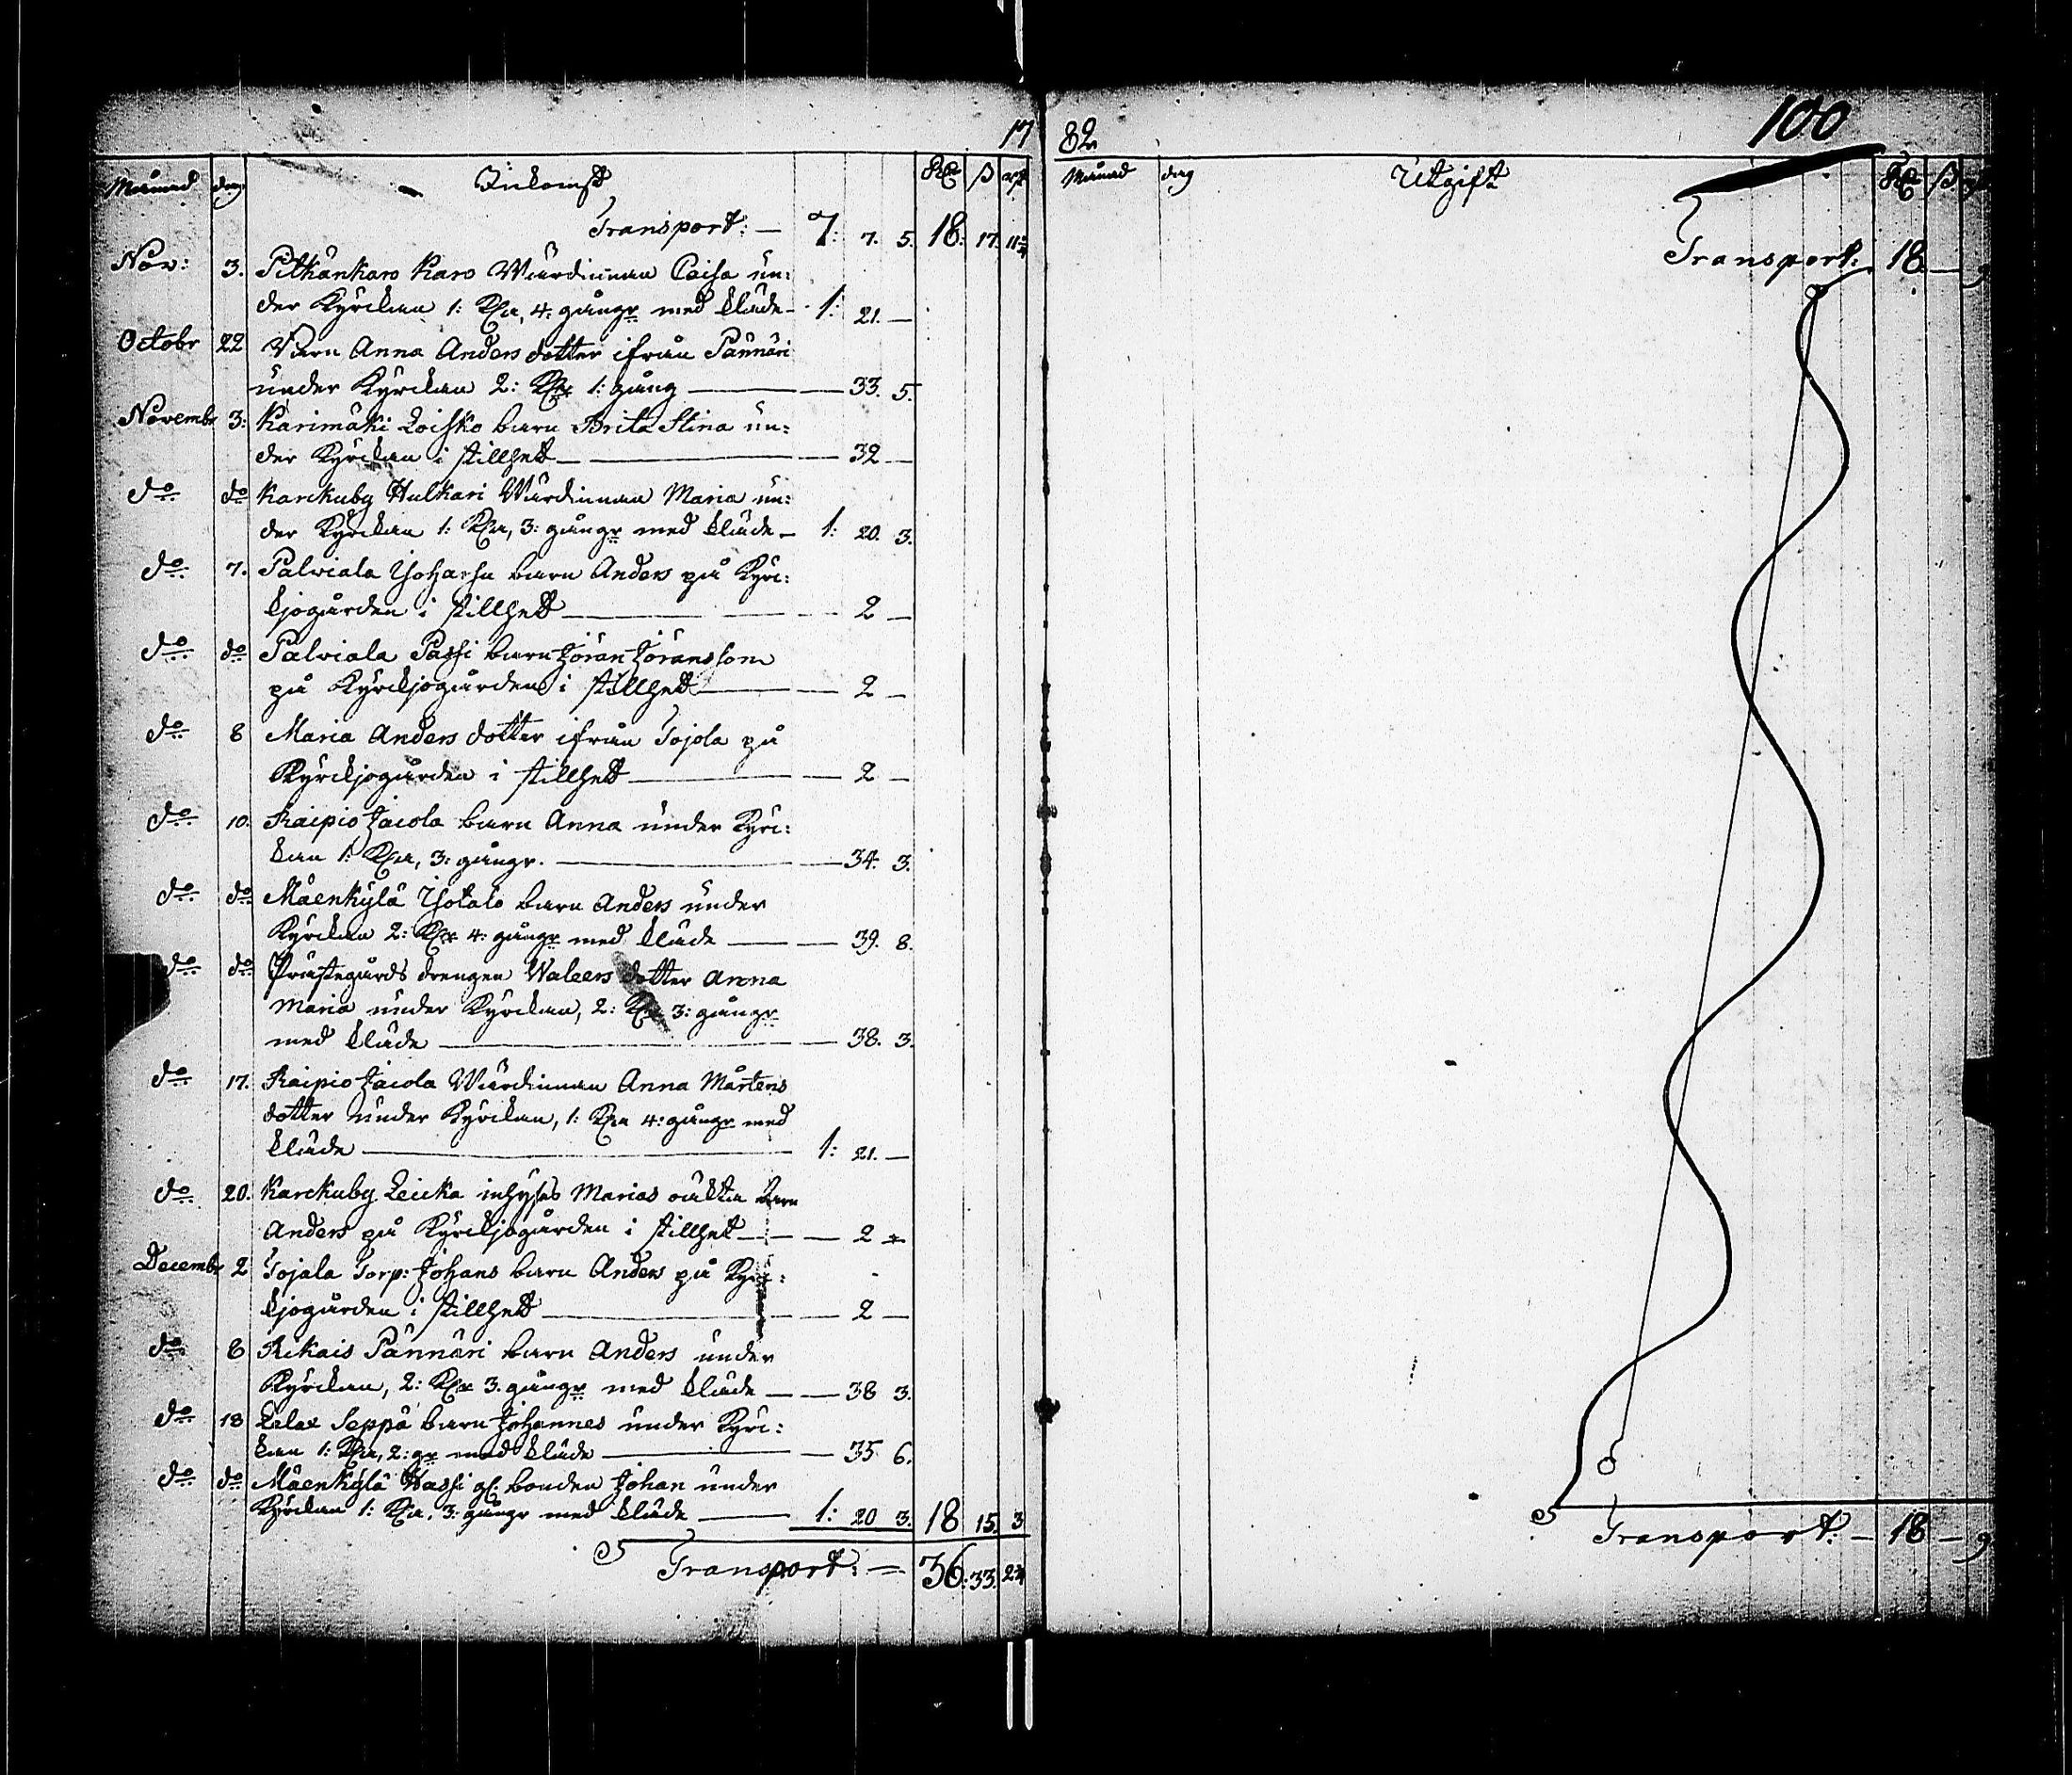 17
Månad dag Inkomst Rd ß rst
Transport: — 7: 7. 5. 18: 17. 11
Nov: 3. Pitkänkaro Karo Wärdinnan Caisa un:
der Kyrckan 1: Kl:a, 4: gångr med kläde — 1: 21. —
Octobr 22 Barn Anna Anders dotter ifrån Pännäri
under Kyrckan 2: Kl:r 1: gång — 33. 5.
Novembr 3: Karimäki Loisko barn Brita Stina un:
der Kyrckan i stillhett — 32 —
do do Karckuby Hulkari Wärdinnan Maria un:
der Kyrckan 1: Kl:a, 3: gångr med kläde — 1: 20. 3.
do 7. Palviala barn Anders på Kyrc:
kjogården i stillhett — 2 —
do do Palviala Passi barn Jöran Jöransson
på Kyrckjogården i stillhett — 2 —
do 8 Maria Anders dotter ifrån Tojola på
Kyrckjogården i stillhett — 2 —
do 10. Raipio Jacola barn Anna under Kyrc:
kan 1: Kl:a, 3: gångr. — 34. 3.
do do Mäenkylä Yotalo barn Anders under
Kyrckan 2: Kl:r 4: gångr med kläde — 39. 8.
do do Prästegårds drengen dotter Anna
Maria under Kyrckan, 2: Kl:r 3: gångr
med kläde — 38. 3.
do 17. Raipio Jacola Wärdinnan Anna Mårtens
dotter under Kyrckan, 1: Kl:a 4: gångr med
kläde — 1: 21. —
do 20. Karckuby Leicka inhyses Marias oäkta barn
Anders på Kyrckjogården i stillhet — 2 —
Decembr 2 Tojala Torp: Johans barn Anders på Kyrc:
kjogården i stillhett — 2 —
do 8 Rekais Pännäri barn Anders under
Kyrckan, 2: Kl:r 3. gångr med kläde — 38 3.
do 18 Lelax Seppä barn Johannes under Kyrc:
kan 1: Kl:a, 2: gr med kläde — 35 6.
do do Mäenkylä Hassi gl. bonden Johan under
Kyrckan 1: Kl:a, 3: gångr med kläde — 1: 20 3. 18 15. 3
Transport: — 36: 33. 2
82
100
Månad dag Utgift Rd ß
Transport: 18 — 9
Transport: — 18 — 9